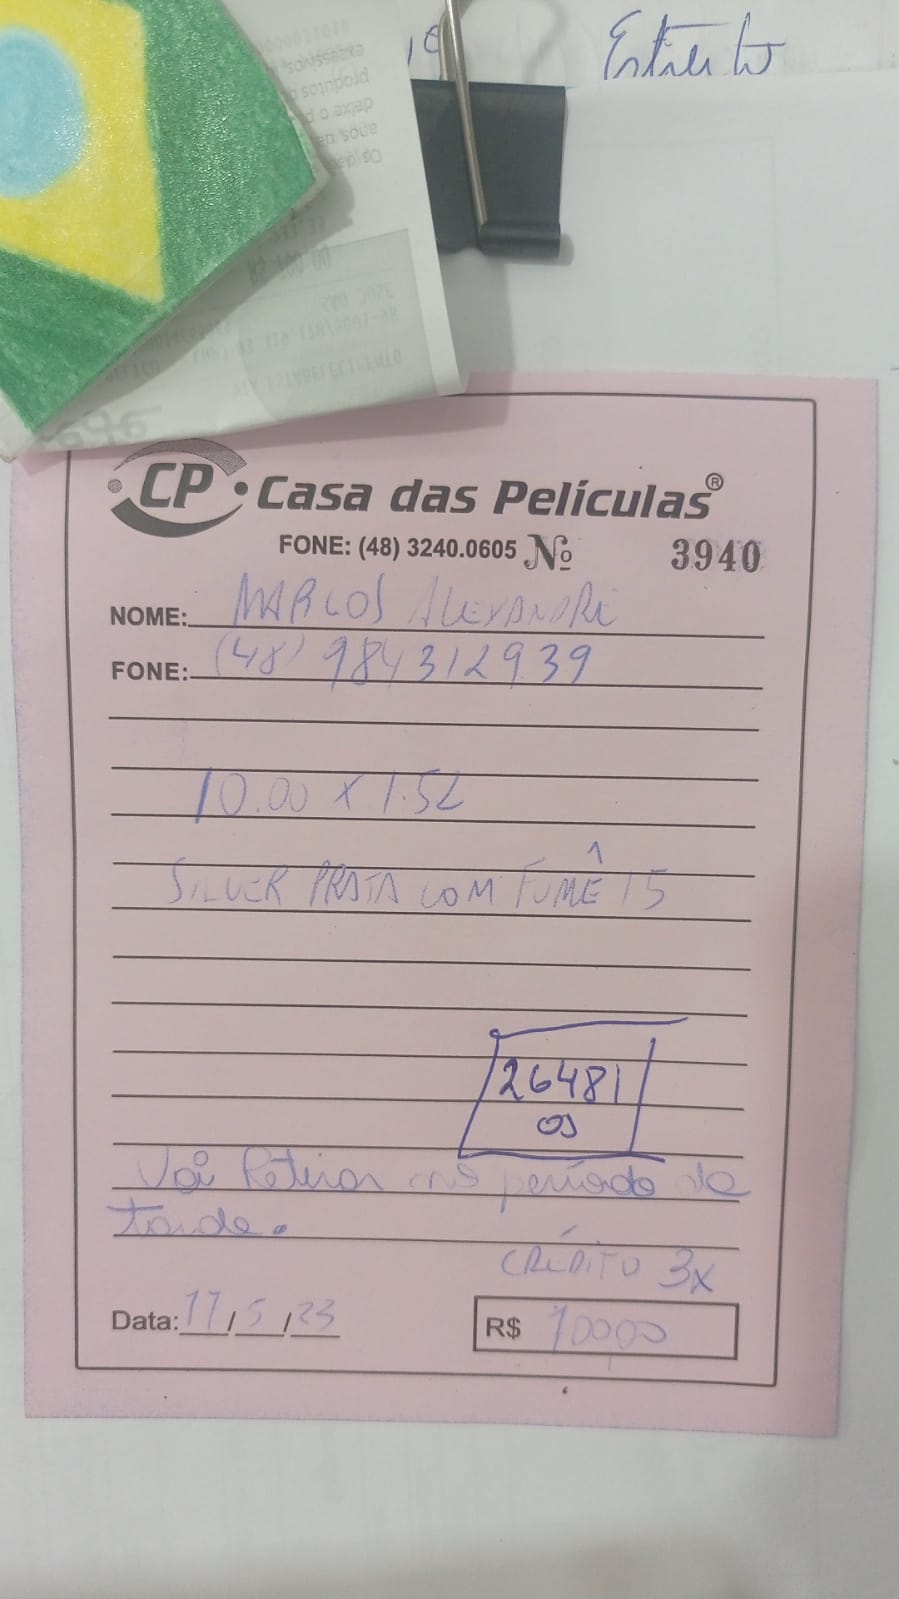 Os
anos
deixe o p
produtos
excessivos,
VIA ESTABELECIMENTO
CP Casa das Películas®
FONE: (48) 3240.0605 Nº 3940
NOME: MARCOS ALEXANDRE
FONE: (48) 984312939
10.00 x 1.52
SILVER PRATA COM FUMÊ 15
26481
OS
Vai Retirar no período da
tarde.
CRÉDITO 3x
Data: 17/5/23 R$